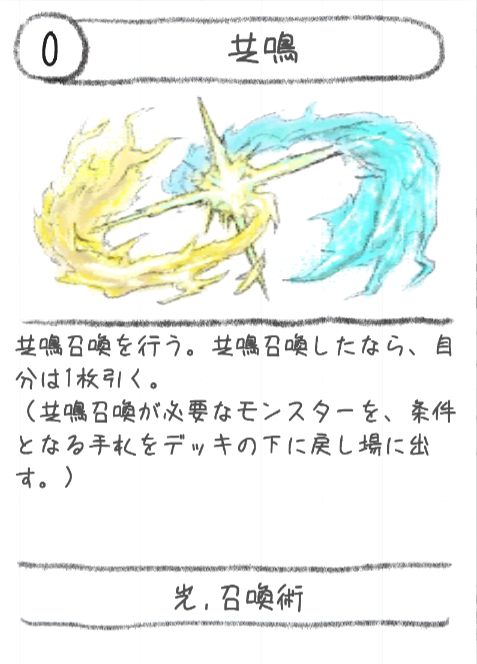 0
共鳴
共鳴召喚を行う。共鳴召喚したなら、自
分は1枚引く。
（共鳴召喚が必要なモンスターを、条件
となる手札をデッキの下に戻し場に出
す。）
光,召喚術